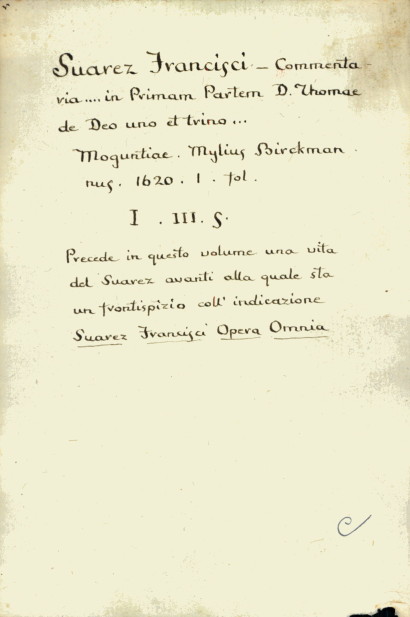 Suarez Francisci — Commenta-
ria .... in Primam Partem D. Thomae
de Deo uno et trino ...
Moguntiae . Mylius Birckman .
nus . 1620 . 1 . fol .
I . III . S .
Precede in questo volume una vita
del Suarez avanti alla quale sta
un frontispizio coll' indicazione
Suarez Francisci Opera Omnia
C